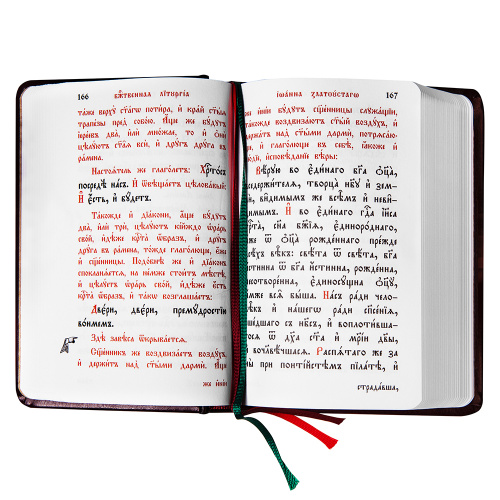 166 бж҃твенная літꙋргі́а
та́же ве́рхꙋ ст҃а́гѡ поти́ра, и҆ кра́й ст҃ы́ѧ
трапе́зы пред̾ собо́ю. А҆́ще же бꙋ́дꙋтъ
і҆ере́ѡвъ два̀, и҆лѝ мно́жае, то̀ и҆ ѻ҆нѝ
цѣлꙋ́ютъ ст҃а̑ѧ всѧ̑, и҆ дрꙋ́гъ дрꙋ́га въ
ра́мена.
Настоѧ́тель же глаго́летъ: Хрⷭ҇то́съ
посредѣ̀ на́съ. И҆ ѿвѣща́етъ цѣлова́вый:
И҆ є҆́сть, и҆ бꙋ́детъ.
Та́кожде и҆ дїа́кони, а҆́ще бꙋ́дꙋтъ
два̀, и҆лѝ трѝ, цѣлꙋ́ютъ кі́йждо ѻ҆ра́рь
сво́й, и҆дѣ́же крⷭ҇та̀ ѻ҆́бразъ, и҆ дрꙋ́гъ
дрꙋ́га въ ра́мена, то́жде глаго́люще, є҆́же
и҆ сщ҃е́нницы. Подо́бнѣ же и҆ дїа́конъ
споклана́етсѧ, на не́мже стои́тъ мѣ́стѣ,
и҆ цѣлꙋ́етъ ѻ҆ра́рь сво́й, и҆дѣ́же є҆́сть
крⷭ҇та̀ ѻ҆́бразъ, и҆ та́кѡ возглаша́етъ:
Две́ри, две́ри, премꙋ́дростїю
во́нмемъ.
Здѣ̀ завѣ́са ѿкрыва́етсѧ.
Сщ҃е́нникъ же воздвиза́етъ воздꙋ́хъ,
и҆ держи́тъ над̾ ст҃ы́ми да́рми. А҆́ще
же и҆ні́и
і҆ѡа́нна златоꙋ́стагѡ 167
же и҆ні́и бꙋ́дꙋтъ сщ҃е́нницы слꙋжа́щїи,
та́кожде воздвиза́ютъ ст҃ы́й воздꙋ́хъ, и҆
держа́тъ над̾ ст҃ы́ми да́рми, потрѧса́ю-
ще, и҆ глаго́люще в̾ себѣ̀, ꙗ҆́коже и҆
лю́дїе, и҆сповѣ́данїе вѣ́ры:
Вѣ́рꙋю во є҆ди́наго бг҃а ѻ҆ц҃а̀,
вседержи́телѧ, творца̀ нб҃ꙋ и҆ зем-
лѝ, ви́димымъ же всѣ̑мъ и҆ неви́-
димымъ. И҆ во є҆ди́наго гдⷭ҇а і҆и҃са
хрⷭ҇та̀, сн҃а бж҃їѧ, є҆диноро́днаго,
и҆́же ѿ ѻ҆ц҃а̀ рожде́ннаго пре́жде
всѣ́хъ вѣ̑къ: свѣ́та ѿ свѣ́та, бг҃а
и҆́стинна ѿ бг҃а и҆́стинна, рожде́нна,
несотворе́нна, є҆диносꙋ́щна ѻ҆ц҃ꙋ̀,
и҆́мже всѧ̑ бы́ша. На́съ ра́ди чело-
вѣ́къ и҆ на́шегѡ ра́ди сп҃се́нїѧ,
сше́дшаго съ нб҃съ, и҆ воплоти́вша-
госѧ ѿ дх҃а ст҃а и҆ мр҃і́и дв҃ы,
и҆ вочл҃вѣ́чшасѧ. Распѧ́таго же за
ны̀ при понті́йстѣмъ піла́тѣ, и҆
страда́вша,